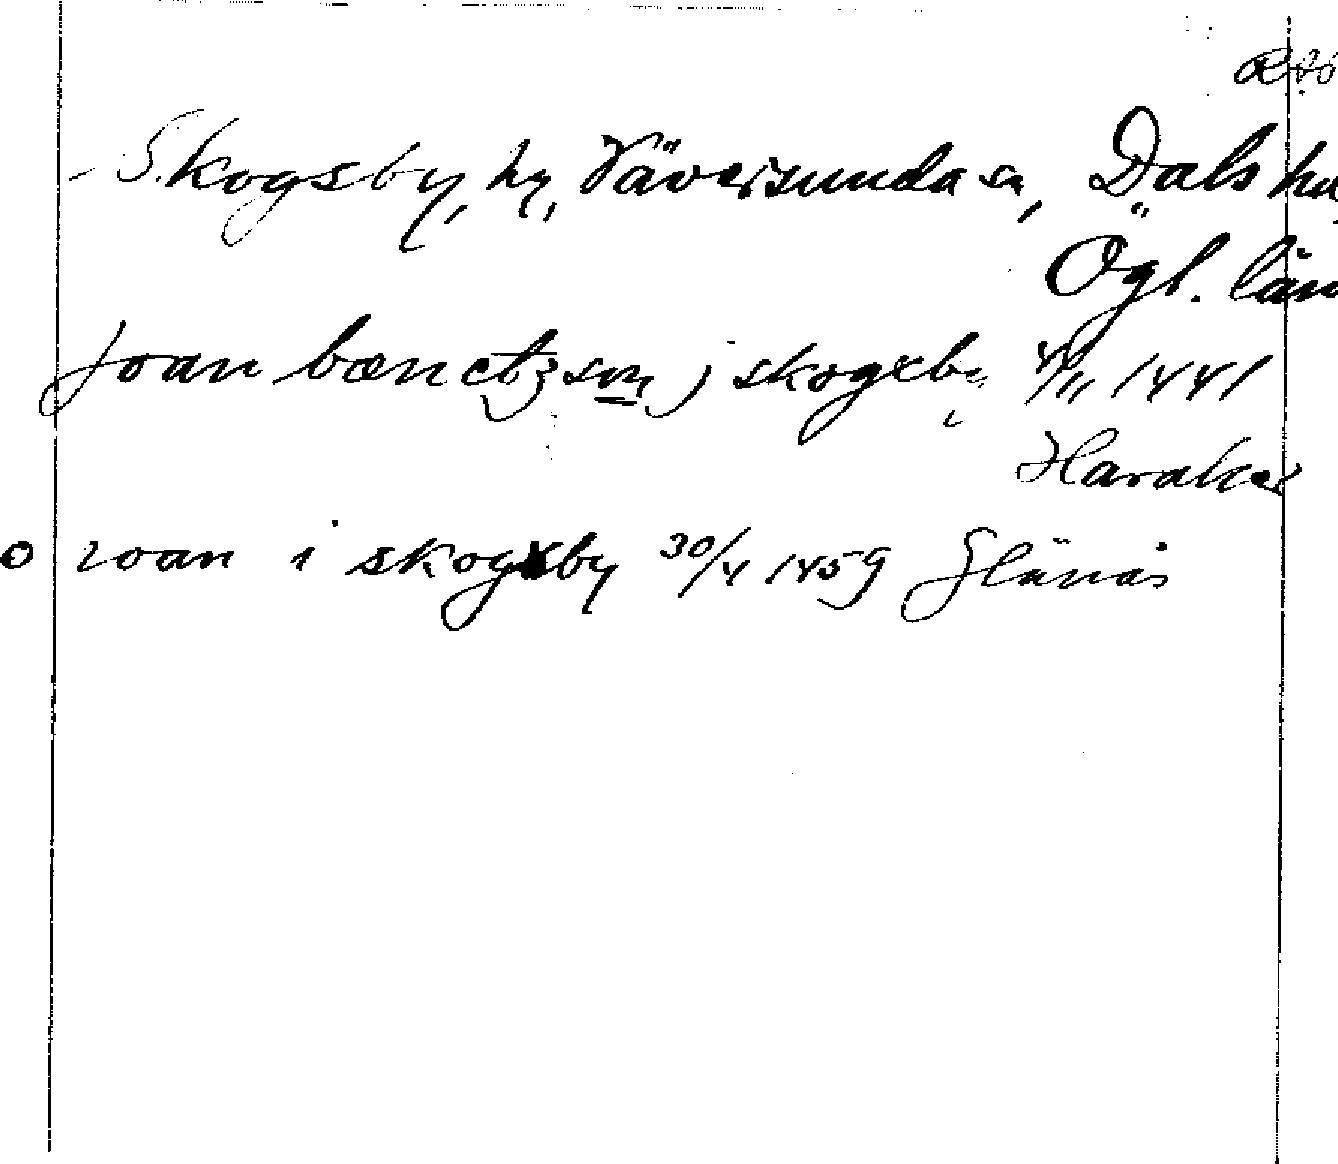 Skogsby, by, Väversunda sn, Dals hd,
Ögl. län
Joan bænctzson j skogxby 4/11 1441
Haraker
ioan i skogxby 30/4 1459 Glänås